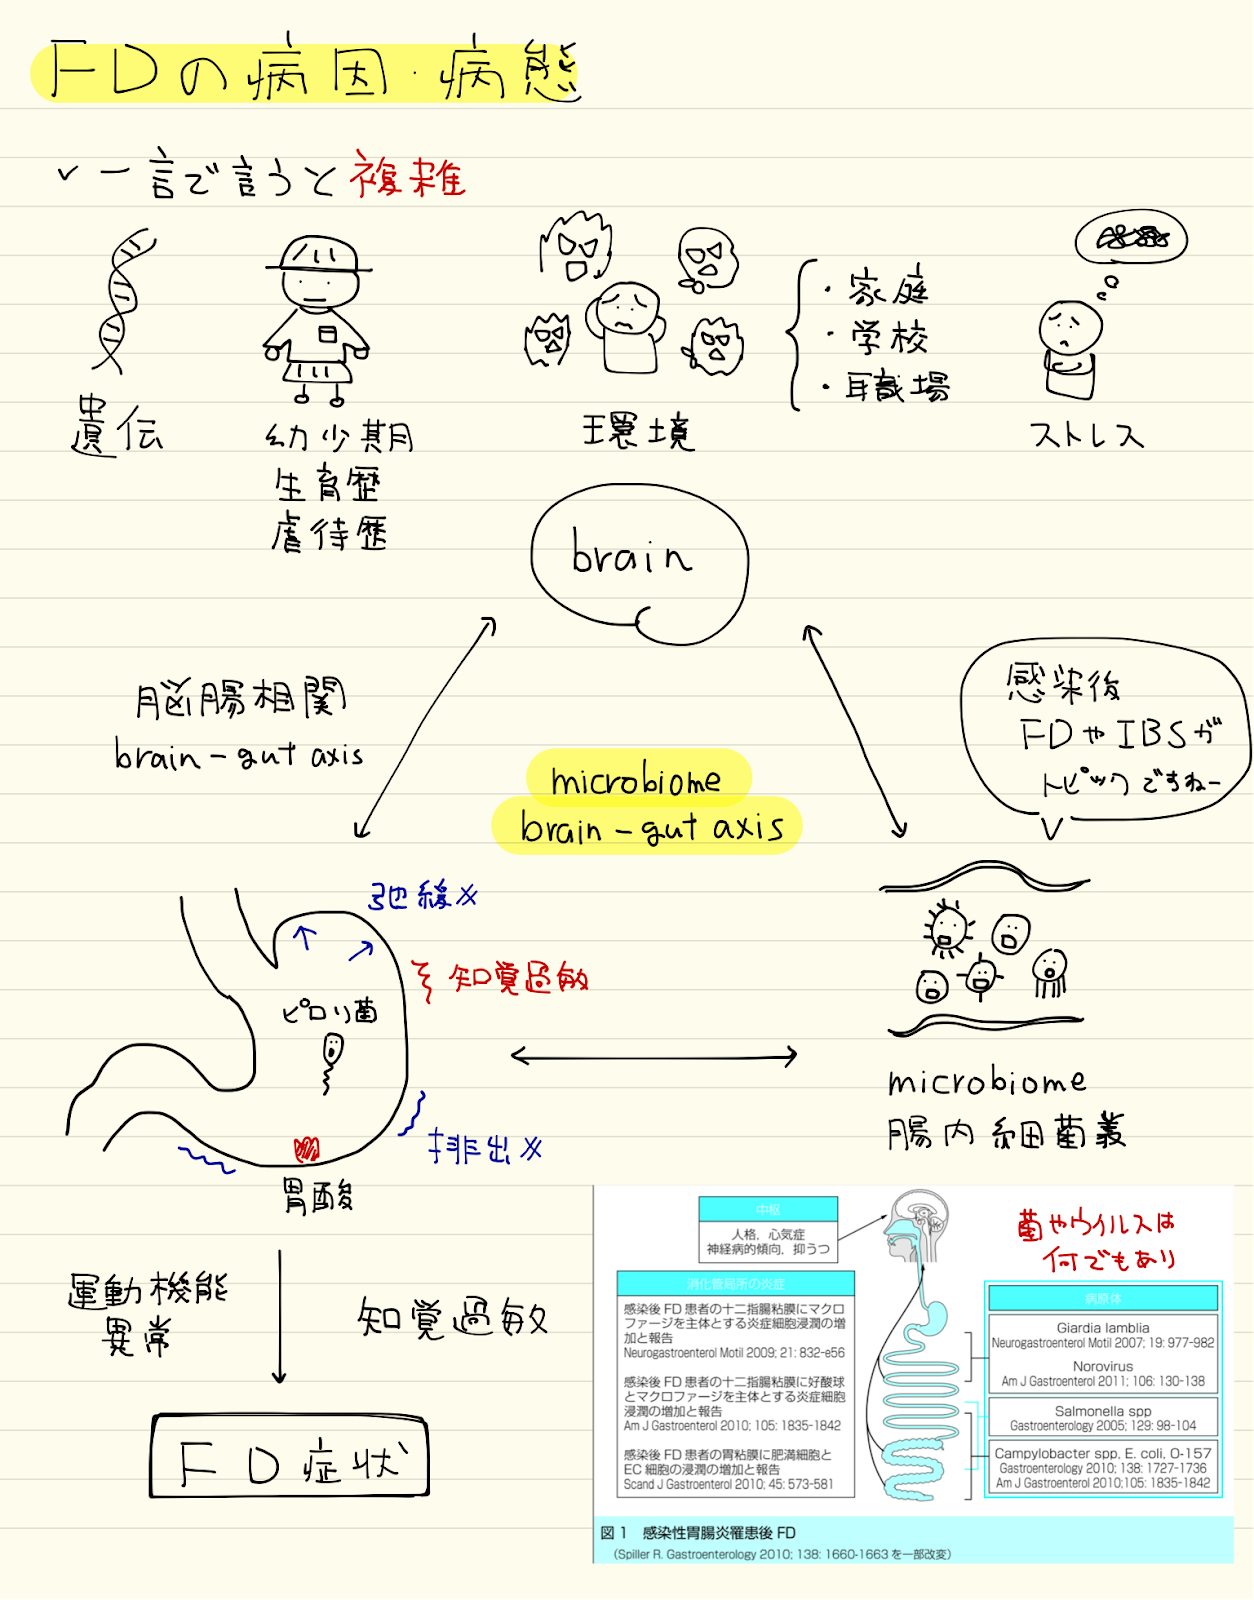 FDの病因・病態
✓ 一言で言うと複雑
遺伝
幼少期
生育歴
虐待歴
環境
・家庭
・学校
・職場
ストレス
brain
脳腸相関
brain-gut axis
microbiome
brain-gut axis
感染後
FDやIBSが
トピックですねー
弛緩×
知覚過敏
ピロリ菌
排出×
胃酸
microbiome
腸内細菌叢
運動機能
異常
知覚過敏
FD症状
中枢
人格，心気症
神経病的傾向，抑うつ
消化管局所の炎症
感染後 FD 患者の十二指腸粘膜にマクロ
ファージを主体とする炎症細胞浸潤の増
加と報告
Neurogastroenterol Motil 2009; 21: 832-e56
感染後 FD 患者の十二指腸粘膜に好酸球
とマクロファージを主体とする炎症細胞
浸潤の増加と報告
Am J Gastroenterol 2010; 105: 1835-1842
感染後 FD 患者の胃粘膜に肥満細胞と
EC 細胞の浸潤の増加と報告
Scand J Gastroenterol 2010; 45: 573-581
菌やウイルスは
何でもあり
病原体
Giardia lamblia
Neurogastroenterol Motil 2007; 19: 977-982
Norovirus
Am J Gastroenterol 2011; 106: 130-138
Salmonella spp
Gastroenterology 2005; 129: 98-104
Campylobacter spp, E. coli, O-157
Gastroenterology 2010; 138: 1727-1736
Am J Gastroenterol 2010; 105: 1835-1842
図 1　感染性胃腸炎罹患後 FD
（Spiller R. Gastroenterology 2010; 138: 1660-1663 を一部改変）